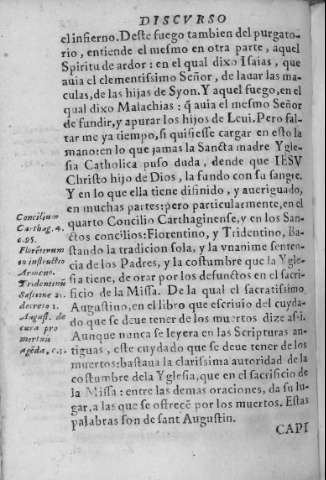 DISCVRSO
el infierno. Deste fuego tambien del purgato-
rio, entiende el mesmo en otra parte, aquel
Spiritu de ardor: en el qual dixo Isaias, que
auia el clementissimo Señor, de lauar las ma-
culas, de las hijas de Syon. Y aquel fuego, en el
qual dixo Malachias: q̃ auia el mesmo Señor
de fundir, y apurar los hijos de Leui. Pero fal-
tar me ya tiempo, si quisiesse cargar en esto la
mano: en lo que jamas la Sancta madre Ygle-
sia Catholica puso duda, dende que IESV
Christo hijo de Dios, la fundo con su sangre.
Y en lo que ella tiene difinido, y aueriguado,
en muchas partes: pero particularmente, en el
quarto Concilio Carthaginense, y en los San-
ctos concilios: Florentino, y Tridentino, Ba-
stando la tradicion sola, y la vnanime senten-
cia de los Padres, y la costumbre que la Ygle-
sia tiene, de orar por los defunctos en el sacri-
ficio de la Missa. De la qual el sacratissimo
Augustino, en el libro que escriuio del cuyda-
do que se deue tener de los muertos dize assi.
Aunque nunca se leyera en las Scripturas an-
tiguas, este cuydado que se deue tener de los
muertos: bastaua la clarissima autoridad de la
costumbre dela Yglesia, que en el sacrificio de
la Missa: entre las demas oraciones, da su lu-
gar, a las que se ofrecẽ por los muertos. Estas
palabras son de sant Augustin.
CAPI
Concilium
Carthag. 4.
c. 95.
Florẽtinum
in instructio
Armeno.
Tridentinũ
Sessione 25.
decreto 1.
August. de
cura pro
mortuis
agẽda, c. 1.